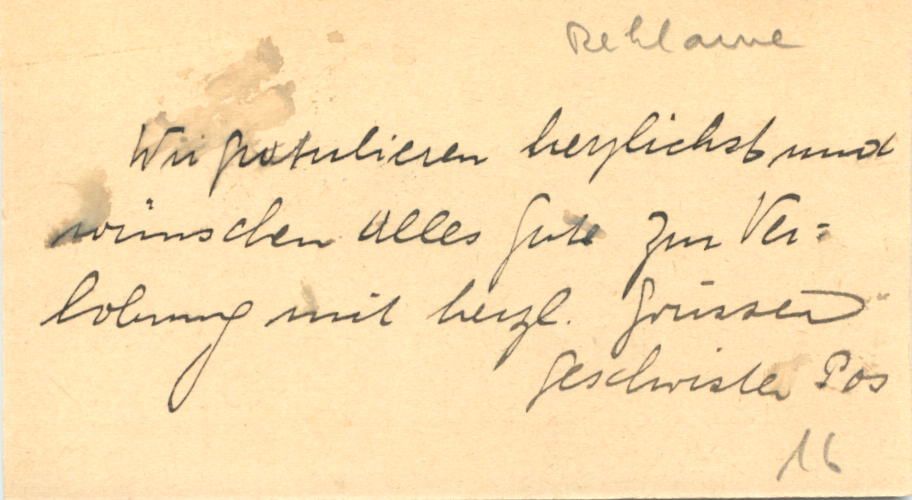 Reklame
Wir gratulieren herzlichst und
wünschen alles Gute zur Ver=
lobung mit herzl. Grüssen
Geschwister Pos
16